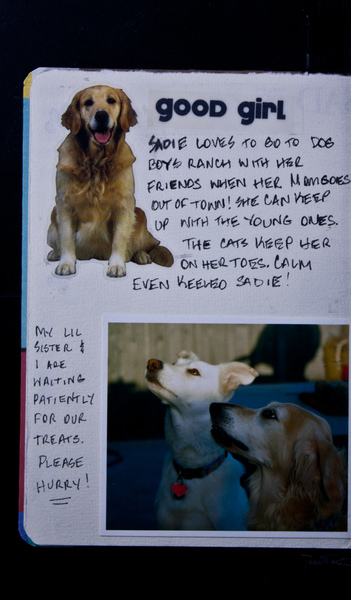 good girl
SADIE LOVES TO GO TO DOG
BOYS RANCH WITH HER
FRIENDS WHEN HER MOM GOES
OUT OF TOWN! SHE CAN KEEP
UP WITH THE YOUNG ONES.
THE CATS KEEP HER
ON HER TOES. CALM
EVEN KEELED SADIE!
MY LIL
SISTER &
I ARE
WAITING
PATIENTLY
FOR OUR
TREATS.
PLEASE
HURRY!